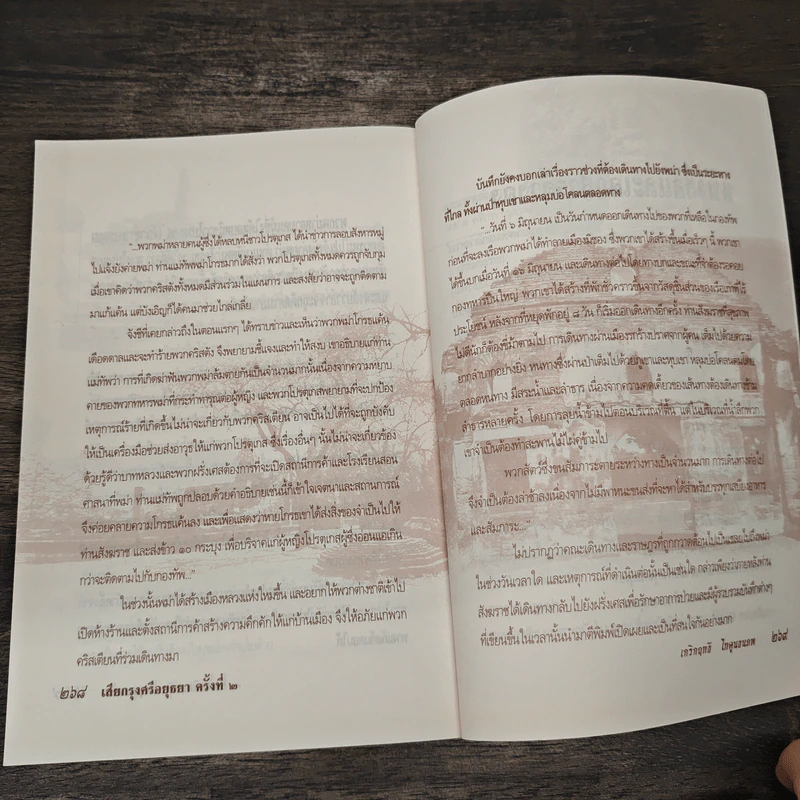 "...พวกพม่าหลายคนผู้ซึ่งได้หลบหนีชาวโปรตุเกส ได้นำข่าวการลอบสังหารหมู่
ไปแจ้งยังค่ายพม่า ท่านแม่ทัพพม่าโกรธมากได้สั่งว่า พวกโปรตุเกสทั้งหมดควรถูกจับกุม
เมื่อเขาคิดว่าพวกคริสตังทั้งหมดมีส่วนร่วมในแผนการ และสงสัยว่าอาจจะถูกติดตาม
มาแก้แค้น แต่บังเอิญก็ได้คนมาช่วยไกล่เกลี่ย
จังซีที่เคยกล่าวถึงในตอนแรกๆ ได้ทราบข่าวและเห็นว่าพวกพม่าโกรธแค้น
เดือดดาลและจะทำร้ายพวกคริสตัง จึงพยายามชี้แจงและทำให้สงบ เขาอธิบายแก่ท่าน
แม่ทัพว่า การที่เกิดฆ่าฟันพวกพม่าล้มตายกันเป็นจำนวนมากนั้นเนื่องจากความหยาบ
คายของพวกทหารพม่าที่กระทำทารุณต่อผู้หญิง และพวกโปรตุเกสพยายามที่จะปกป้อง
เหตุการณ์ร้ายที่เกิดขึ้นไม่น่าจะเกี่ยวกับพวกคริสเตียน อาจเป็นไปได้ที่จะถูกบังคับ
ให้เป็นเครื่องมือช่วยส่งอาวุธให้แก่พวกโปรตุเกส ซึ่งเรื่องอื่นๆ นั้นไม่น่าจะเกี่ยวข้อง
ด้วยรู้ดีว่าบาทหลวงและพวกฝรั่งเศสต้องการที่จะเปิดสถานีการค้าและโรงเรียนสอน
ศาสนาที่พม่า ท่านแม่ทัพถูกปลอบด้วยคำอธิบายเช่นนี้ก็เข้าใจเจตนาและสถานการณ์
จึงค่อยคลายความโกรธแค้นลง และเพื่อแสดงว่าหายโกรธเขาได้ส่งสิ่งของจำเป็นไปให้
ท่านสังฆราช และส่งข้าว ๑๐ กระบุง เพื่อบริจาคแก่ผู้หญิงโปรตุเกสผู้ซึ่งอ่อนแอเกิน
กว่าจะติดตามไปกับกองทัพ..."
ในช่วงนั้นพม่าได้สร้างเมืองหลวงแห่งใหม่ขึ้น และอยากให้พวกต่างชาติเข้าไป
เปิดห้างร้านและตั้งสถานีการค้าสร้างความคึกคักให้แก่บ้านเมือง จึงให้อภัยแก่พวก
คริสเตียนที่ร่วมเดินทางมา
๒๖๘ เสียกรุงศรีอยุธยา ครั้งที่ ๒
บันทึกยังคงบอกเล่าเรื่องราวช่วงที่ต้องเดินทางไปยังพม่า ซึ่งเป็นระยะทาง
ที่ไกล ทั้งผ่านป่าทุบเขาและหลุมบ่อโคลนตลอดทาง
"...วันที่ ๖ มิถุนายน เป็นวันกำหนดออกเดินทางไปของพวกที่เหลือในกองทัพ
ก่อนที่จะลงเรือพวกพม่าได้ทำลายเมืองมิชอง ซึ่งพวกเขาได้สร้างขึ้นเมื่อเร็วๆ นี้ พวกเขา
ได้ขึ้นบกเมื่อวันที่ ๑๖ มิถุนายน และเดินทางต่อไปโดยทางบกและขณะที่จำต้องรอคอย
กองทหารปืนใหญ่ พวกเขาได้สร้างที่พักชั่วคราวขึ้นจากวัสดุชิ้นส่วนของเรือเก่าที่ใช้
ประโยชน์ หลังจากที่หยุดพักอยู่ ๘ วัน ก็เริ่มออกเดินทางอีกครั้ง ท่านสังฆราชที่สุขภาพ
ไม่ดีนักก็ต้องขี่ม้าตามไป การเดินทางผ่านเมืองรกร้างปราศจากผู้คน เต็มไปด้วยความ
ยากลำบากอย่างยิ่ง หนทางซึ่งผ่านป่าเต็มไปด้วยภูเขาและหุบเขา หลุมบ่อโคลนตมโดย
ตลอดหนทาง มีสระน้ำและลำธาร เนื่องจากความคดเคี้ยวของเส้นทางต้องเดินทางข้าม
ลำธารหลายครั้ง โดยการลุยน้ำข้ามไปตอนบริเวณที่ตื้น แต่ในบริเวณที่น้ำลึกพวก
เขาจำเป็นต้องทำสะพานไม้ไผ่คู่ข้ามไป
พวกสัตว์ซึ่งขนสัมภาระตายระหว่างทางเป็นจำนวนมาก การเดินทางต่อไป
จึงจำเป็นต้องล่าช้าลงเนื่องจากไม่มีพาหนะขนส่งที่จะหาได้สำหรับบรรทุกเสบียงอาหาร
และสัมภาระ..."
ไม่ปรากฏว่าคณะเดินทางและราษฎรที่ถูกกวาดต้อนไปเป็นเชลยไปถึงพม่า
ในช่วงวันเวลาใด และเหตุการณ์ที่ดำเนินต่อนั้นเป็นเช่นใด กล่าวเพียงว่าภายหลังท่าน
สังฆราชได้เดินทางกลับไปยังฝรั่งเศสเพื่อรักษาอาการป่วยและมีผู้รวบรวมบันทึกต่างๆ
ที่เขียนขึ้นในเวลานั้นนำมาตีพิมพ์เปิดเผยและเป็นที่สนใจกันอย่างมาก
เกริกฤทธิ ไทคูนธนภพ ๒๖๙